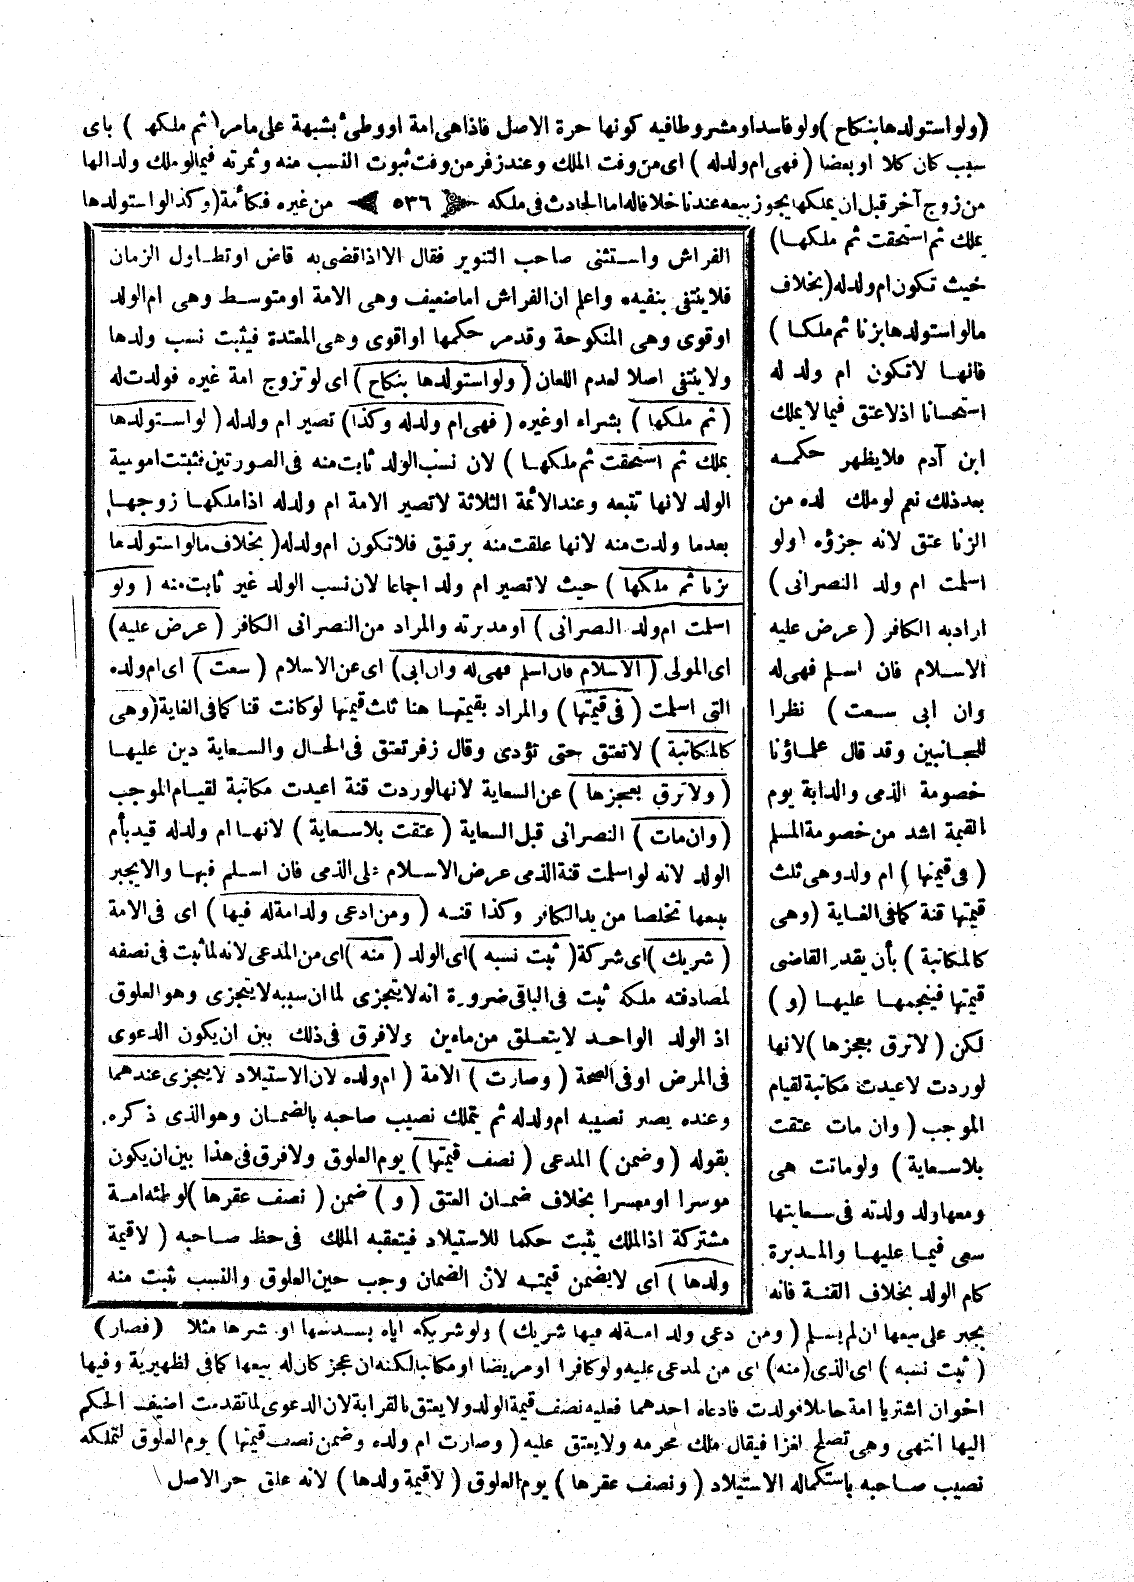 (ولو استولدها بنكاح) ولو فاسدا ومشروطا فيه كونها حرة الاصل فاذا هى امة او وطئ بشبهة على ما مر (ثم ملكها) باى
سبب كان كلا او بعضا (فهى ام ولد له) اى من وقت الملك وعند زفر من وقت ثبوت النسب منه وثمرته فيما لو ملك ولدا لها
من زوج آخر قبل ان يملكها يجوز بيعه عندنا خلافا له اما الحادث فى ملكه ٥٣٦ من غيره فكأمه (وكذا لو استولدها
بملك ثم استحقت ثم ملكها)
حيث تكون ام ولد له (بخلاف
ما لو استولدها بزنا ثم ملكها)
فانها لا تكون ام ولد له
استحسانا اذ لا عتق فيما لا يملك
ابن آدم فلا يظهر حكمه
بعد ذلك نعم لو ملك ولده من
الزنا عتق لانه جزؤه (ولو
اسلمت ام ولد النصرانى)
اراد به الكافر (عرض عليه
الاسلام فان اسلم فهى له
وان ابى سعت) نظرا
للجانبين وقد قال علماؤنا
خصومة الذمى والدابة يوم
القيمة اشد من خصومة المسلم
(فى قيمتها) ام ولد وهى ثلث
قيمتها قنة كما فى الغاية (وهى
كالمكاتبة) بأن يقدر القاضى
قيمتها فينجمها عليها (و)
لكن (لا ترق بعجزها) لانها
لو ردت لاعيدت مكاتبة لقيام
الموجب (وان مات عتقت
بلا سعاية) ولو ماتت هى
ومعها ولد ولدته فى سعايتها
سعى فيما عليها والمدبرة
كام الولد بخلاف القنة فانه
الفراش واستثنى صاحب التنوير فقال الا اذا قضى به قاض او تطاول الزمان
فلا ينتفى بنفيه واعلم ان الفراش اما ضعيف وهى الامة او متوسط وهى ام الولد
او قوى وهى المنكوحة وقد مر حكمها او اقوى وهى المعتدة فيثبت نسب ولدها
ولا ينتفى اصلا لعدم اللعان (ولو استولدها بنكاح) اى لو تزوج امة غيره فولدت له
(ثم ملكها) بشراء او غيره (فهى ام ولد له وكذا) تصير ام ولد له (لو استولدها
بملك ثم استحقت ثم ملكها) لان نسب الولد ثابت منه فى الصورتين فثبتت امومية
الولد لانها تتبعه وعند الائمة الثلاثة لا تصير الامة ام ولد له اذا ملكها زوجها
بعدما ولدت منه لانها علقت منه برقيق فلا تكون ام ولد له (بخلاف ما لو استولدها
بزنا ثم ملكها) حيث لا تصير ام ولد اجماعا لان نسب الولد غير ثابت منه (ولو
اسلمت ام ولد النصرانى) او مدبرته والمراد من النصرانى الكافر (عرض عليه)
اى المولى (الاسلام فان اسلم فهى له وان ابى) اى عن الاسلام (سعت) اى ام ولده
التى اسلمت (فى قيمتها) والمراد بقيمتها هنا ثلث قيمتها لو كانت قنا كما فى الغاية (وهى
كالمكاتبة) لا تعتق حتى تؤدى وقال زفر تعتق فى الحال والسعاية دين عليها
(ولا ترق بعجزها) عن السعاية لانها لو ردت قنة اعيدت مكاتبة لقيام الموجب
(وان مات) النصرانى قبل السعاية (عتقت بلا سعاية) لانها ام ولد له قيد بأم
الولد لانه لو اسلمت قنة الذمى عرض الاسلام على الذمى فان اسلم فبها والا يجبر
ببيعها تخلصا من يد الكافر وكذا قنه (ومن ادعى ولد امة له فيها) اى فى الامة
(شريك) اى شركة (ثبت نسبه) اى الولد (منه) اى من المدعى لانه لما ثبت فى نصفه
لمصادفته ملكه ثبت فى الباقى ضرورة انه لا يتجزى لما ان سببه لا يتجزى وهو العلوق
اذ الولد الواحد لا يتعلق من ماءين ولا فرق فى ذلك بين ان يكون الدعوى
فى المرض او فى الصحة (وصارت) الامة (ام ولده لان الاستيلاد لا يتجزى عندهما
وعنده يصير نصيبه ام ولد له ثم يتملك نصيب صاحبه بالضمان وهو الذى ذكره.
بقوله (وضمن) المدعى (نصف قيمتها) يوم العلوق ولا فرق فى هذا بين ان يكون
موسرا او معسرا بخلاف ضمان العتق (و) ضمن (نصف عقرها) لوطئه امة
مشتركة اذ الملك يثبت حكما للاستيلاد فيتعقبه الملك فى حظ صاحبه (لا قيمة
ولدها) اى لا يضمن قيمته لان الضمان وجب حين العلوق والنسب ثبت منه
يجبر على بيعها ان لم يسلم (ومن ادعى ولد امة له فيها شريك) ولو شريكه اياه بسدسها او عشرها مثلا (فصار)
(ثبت نسبه) اى الذى (منه) اى من المدعى عليه ولو كافرا او مريضا او مكاتبا لكنه ان عجز كان له بيعها كما فى الظهيرية وفيها
اخوان اشتريا امة حاملا فولدت فادعاه احدهما فعليه نصف قيمة الولد ولا يعتق بالقرابة لان الدعوى لما تقدمت اضيف الحكم
اليها انتهى وهى تصلح لغزا فيقال ملك محرمه ولا يعتق عليه (وصارت ام ولده وضمن نصف قيمتها) يوم العلوق لتملكه
نصيب صاحبه باستكماله الاستيلاد (ونصف عقرها) يوم العلوق (لا قيمة ولدها) لانه علق حر الاصل